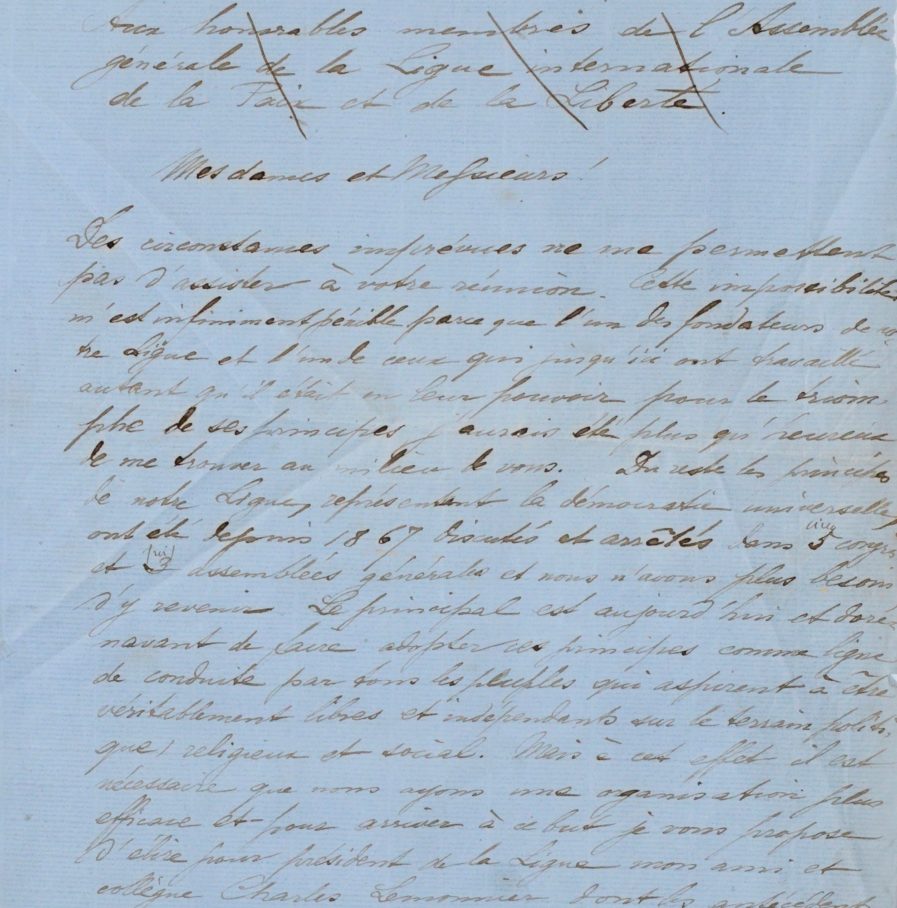 Aux honorables membres de l'Assemblée
générale de la Ligue internationale
de la Paix et de la Liberté.
Mesdames et Messieurs!
Des circonstances imprévues ne me permettent
pas d'assister à votre réunion. Cette impossibilité
m'est infiniment pénible parce que l'un des fondateurs de no
tre Ligue et l'un de ceux qui jusqu'ici ont travaillé
autant qu'il était en leur pouvoir pour le triom
phe de ses principes j'aurais été plus qu'heureux
de me trouver au milieu de vous. Du reste les principes
de notre Ligue, représentent la démocratie universelle,
ont été depuis 1867 discutés et arrêtés dans 5 cinq congrès
et assemblées générales et nous n'avons plus besoin
d'y revenir. Le principal est aujourd'hui et doré-
navant de faire adopter ces principes comme ligne
de conduite par tous les peuples qui aspirent à être
véritablement libres et indépendants sur le terrain politi-
que, religieux et social. Mais à cet effet il est
nécessaire que nous ayons une organisation plus
efficace et pour arriver à ce but je vous propose
d'élire pour président de la Ligue mon ami et
collègue Charles Lemonnier dont les antécédent